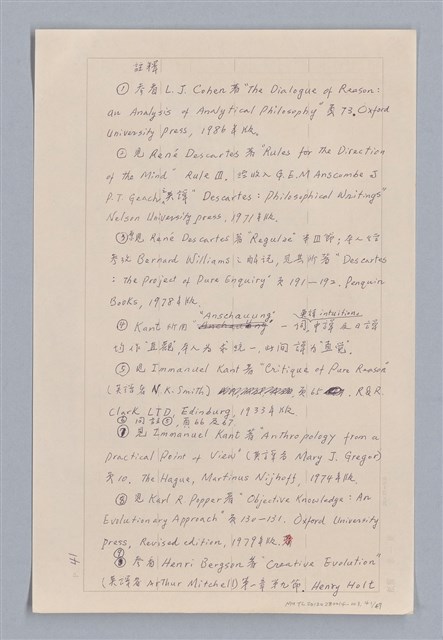 註釋
① 参看 L. J. Cohen 著 "The Dialogue of Reason:
an Analysis of Analytical Philosophy" 頁 73. Oxford
University press, 1986年版.
② 見 René Descartes 著 "Rules for the Direction
of the Mind" Rule III. G.E.M Anscombe &
P.T. Geach 英譯 "Descartes: Philosophical Writings"
Nelson University press, 1971年版.
③ 見 René Descartes 著 "Regulae" 第III節;
Bernard Williams 解說, 見其所著 "Descartes
: The Project of Pure Enquiry" 頁 191–192. Penguin
Books, 1978年版.
④ Kant 所用 "Anschauung" 一詞 英譯 intuitions 中譯及日譯
均作 "直觀", 本人為求統一, 此間譯為 "直覺".
⑤ 見 Immanuel Kant 著 "Critique of Pure Reason"
(英譯者 N.K. Smith) 頁65, R&R.
Clark LTD, Edinburg, 1933年版
⑥ 同註⑤, 頁66及67.
⑦ 見 Immanuel Kant 著 "Anthropology from a
practical Point of View" (英譯者 Mary J. Gregor)
頁10. The Hague, Martinus Nijhoff, 1974年版.
⑧ 見 Karl R Popper 著 "Objective Knowledge: An
Evolutionary Approach" 頁 130–131. Oxford University
press, Revised edition, 1979年版.
⑨ 参看 Henri Bergson 著 "Creative Evolution"
(英譯者 Arthur Mitchell) 第一章 Henry Holt
41